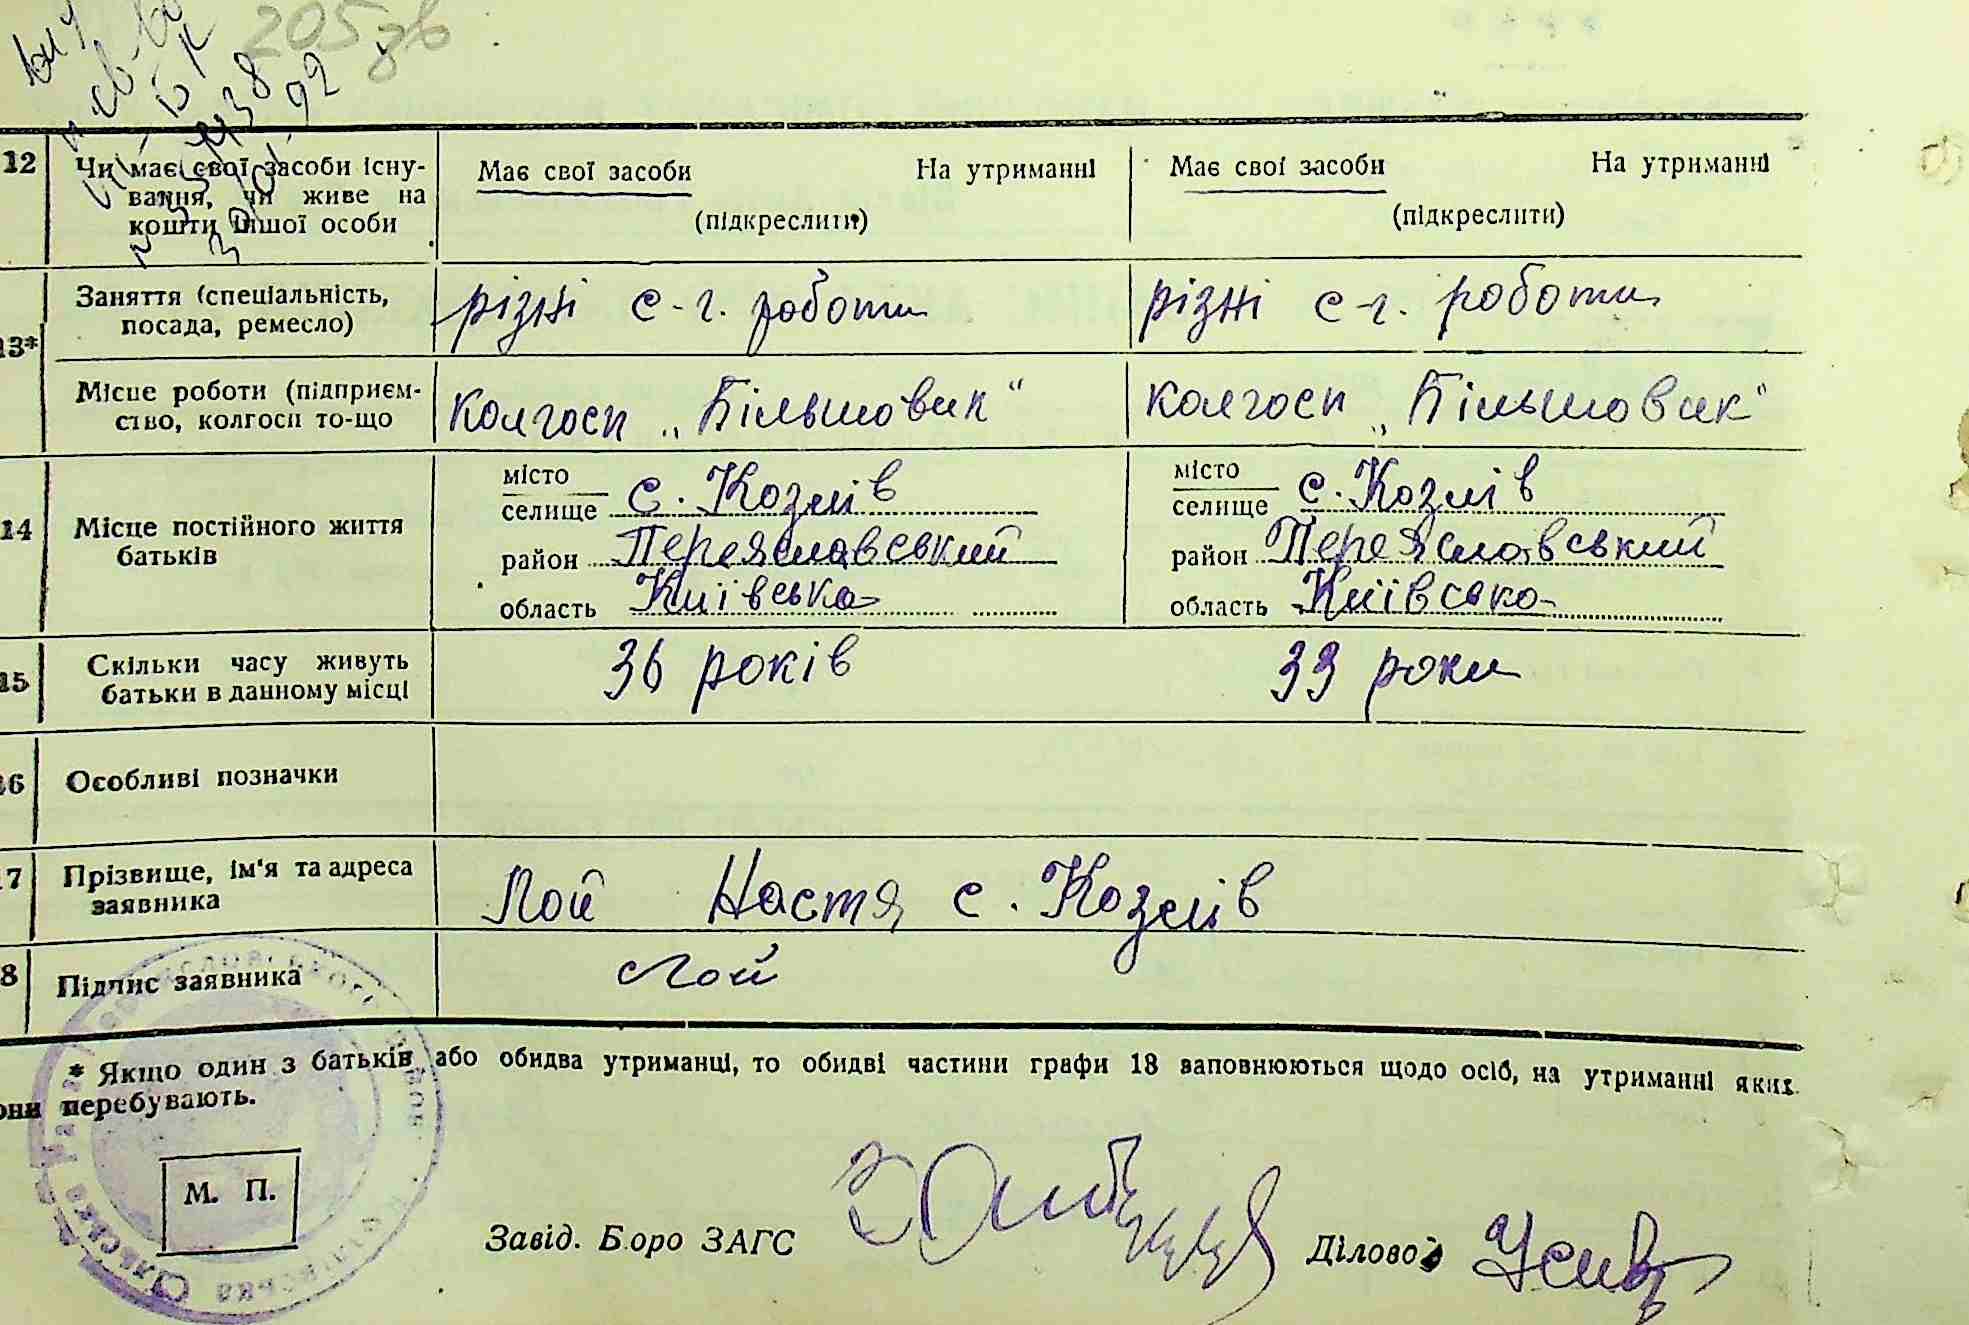 205 зв
12 Чи має свої засоби існу- Має свої засоби На утриманні Має свої засоби На утриманні
вання, чи живе на (підкреслити) (підкреслити)
кошти іншої особи
13* Заняття (спеціальність, різні с-г. роботи різні с-г. роботи
посада, ремесло)
Місце роботи (підприєм- колгосп „Більшовик“ колгосп „Більшовик“
ство, колгосп то-що
14 Місце постійного життя місто місто
батьків селище с. Козлів селище с. Козлів
район Переяславський район Переяславський
область Київська область Київська
15 Скільки часу живуть 36 років 33 роки
батьки в данному місці
16 Особливі позначки
17 Прізвище, ім'я та адреса Лой Настя с. Козлів
заявника
18 Підпис заявника Лой
* Якщо один з батьків або обидва утриманці, то обидві частини графи 18 заповнюються щодо осіб, на утриманні яких
они перебувають.
М. П.
Завід. Бюро ЗАГС Діловод